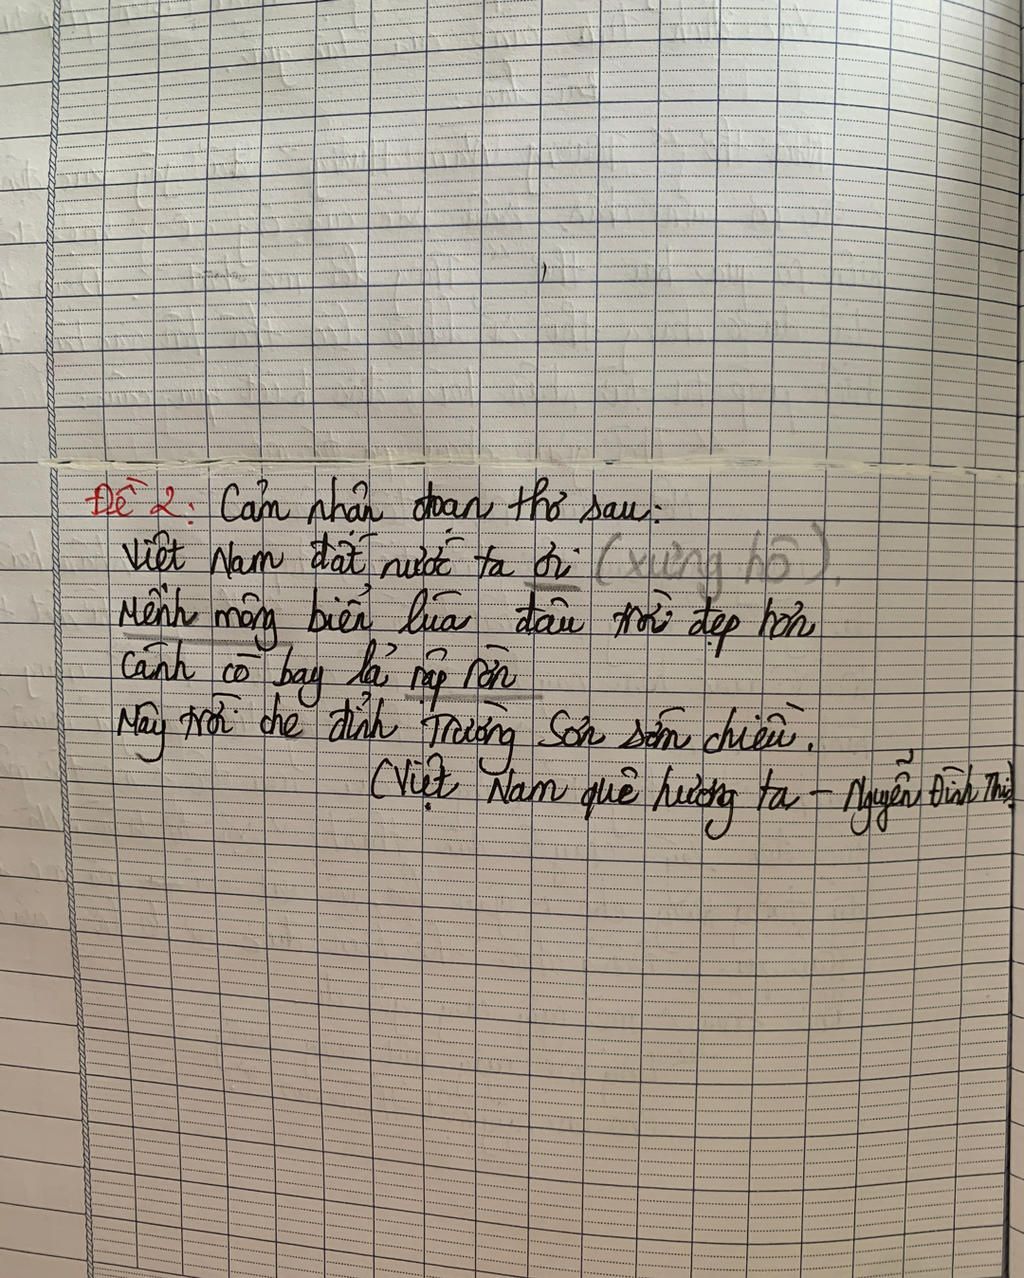 Đề 2: Cảm nhận đoạn thơ sau:
Việt Nam đất nước ta ơi (xưng hô).
Mênh mông biển lúa đâu trời đẹp hơn
Cánh cò bay lả rập rờn
Mây trời che đỉnh Trường Sơn sớm chiều.
(Việt Nam quê hương ta - Nguyễn Đình Thi)